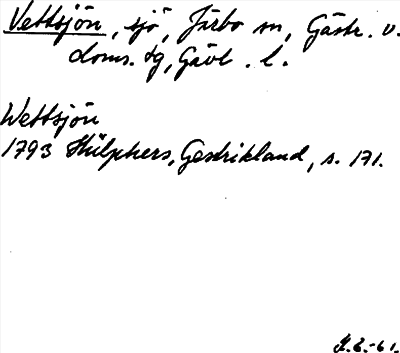 Vettsjön, sjö, Järbo sn, Gästr. v.
doms. tg, Gävl. l.
Wettsjön
1793 Hülphers, Gestrikland, s. 171.